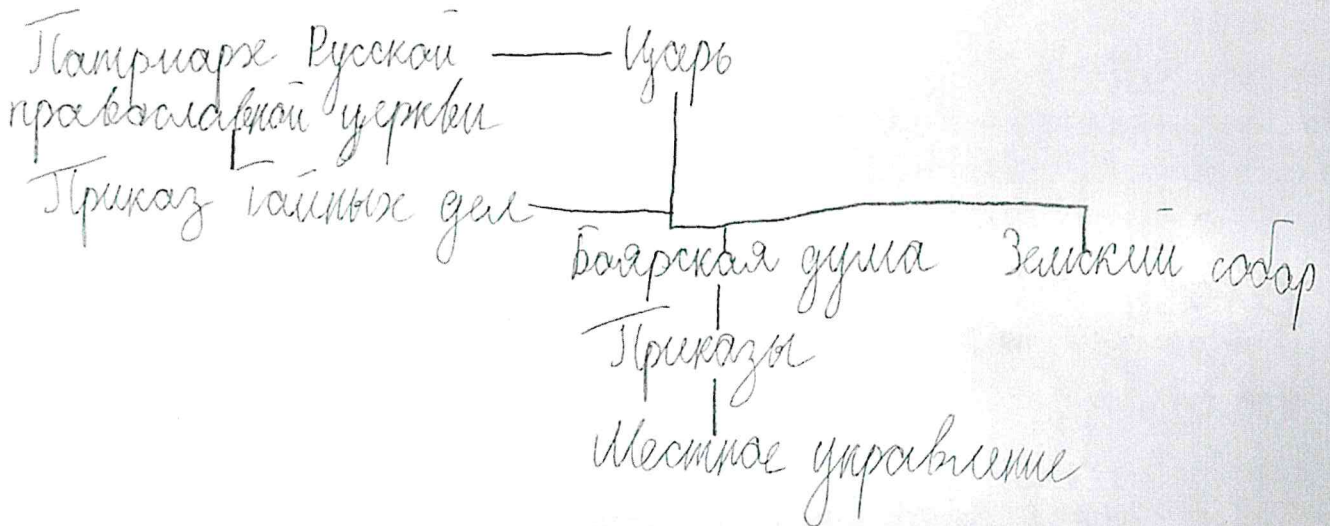 Патриарх Русской
Царь
православной церкви
Приказ Тайных дел
Боярская дума
Земский собор
Приказы
Местное управление